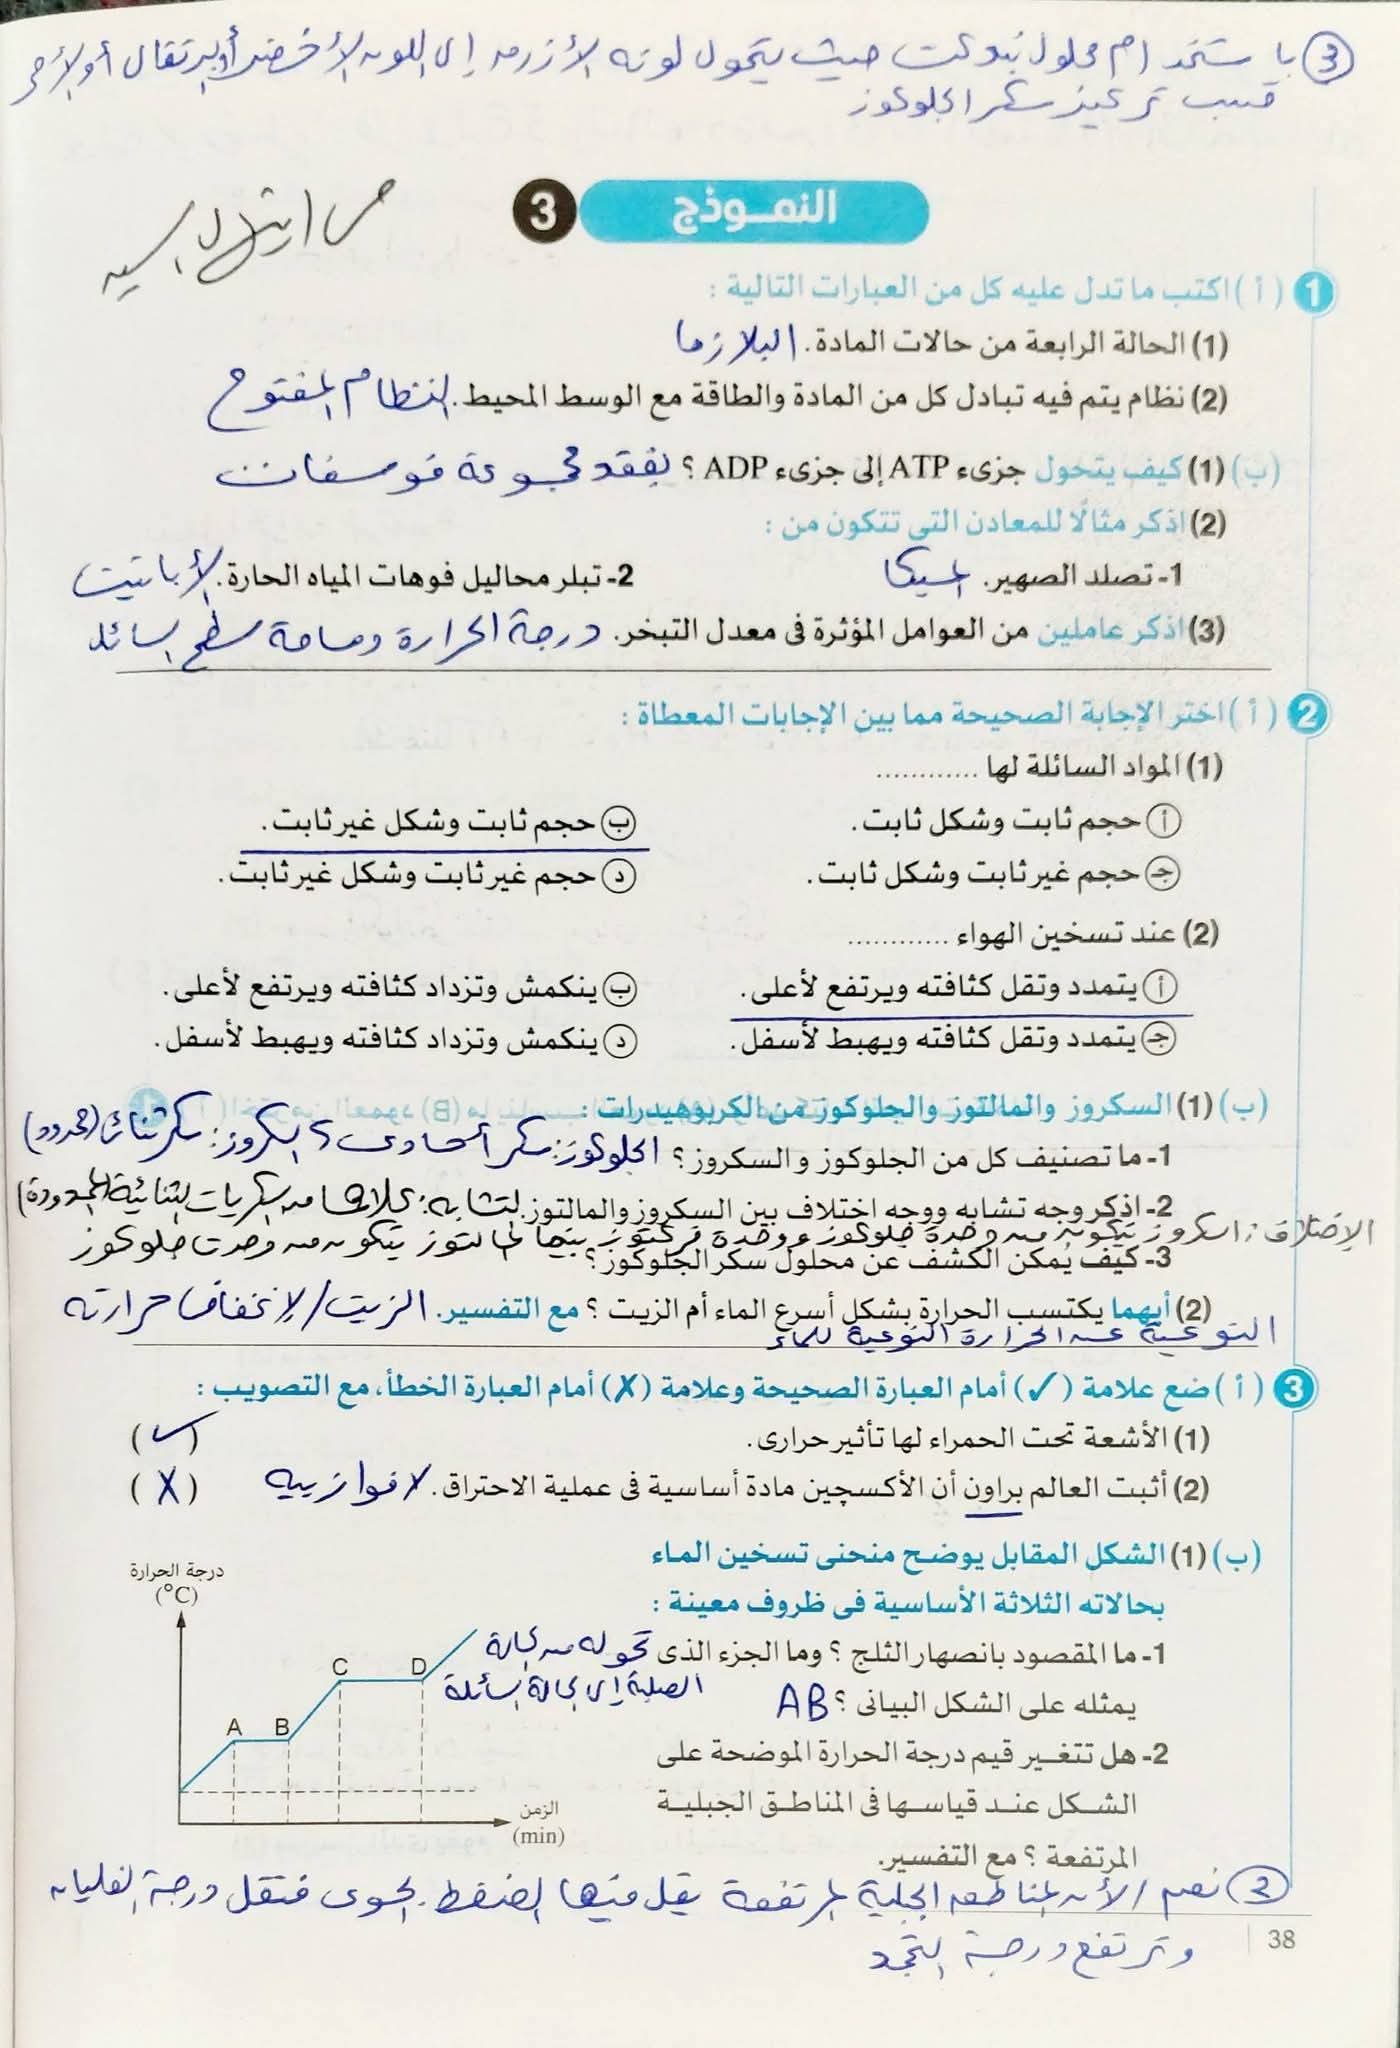 (3) باستخدام محلول بندكت حيث يتحول لونه الأزرق إلى اللون الأخضر أو البرتقالى أو الأحمر
حسب تركيز سكر الجلوكوز
النموذج 3
1 (أ) اكتب ما تدل عليه كل من العبارات التالية :
(1) الحالة الرابعة من حالات المادة. البلازما
(2) نظام يتم فيه تبادل كل من المادة والطاقة مع الوسط المحيط. النظام المفتوح
(ب) (1) كيف يتحول جزىء ATP إلى جزىء ADP ؟ بفقد مجموعة فوسفات
(2) اذكر مثالًا للمعادن التى تتكون من :
1- تصلد الصهير. الميكا 2- تبلر محاليل فوهات المياه الحارة. الأباتيت
(3) اذكر عاملين من العوامل المؤثرة فى معدل التبخر. درجة الحرارة ومساحة سطح السائل
2 (أ) اختر الإجابة الصحيحة مما بين الإجابات المعطاة :
(1) المواد السائلة لها ............
أ حجم ثابت وشكل ثابت. ب حجم ثابت وشكل غير ثابت.
جـ حجم غير ثابت وشكل ثابت. د حجم غير ثابت وشكل غير ثابت.
(2) عند تسخين الهواء ............
أ يتمدد وتقل كثافته ويرتفع لأعلى. ب ينكمش وتزداد كثافته ويرتفع لأعلى.
جـ يتمدد وتقل كثافته ويهبط لأسفل. د ينكمش وتزداد كثافته ويهبط لأسفل.
(ب) (1) السكروز والمالتوز والجلوكوز من الكربوهيدرات :
1- ما تصنيف كل من الجلوكوز والسكروز ؟ الجلوكوز: سكر أحادى ، السكروز: سكر ثنائى (محدود)
2- اذكر وجه تشابه ووجه اختلاف بين السكروز والمالتوز. التشابه: كلاهما من السكريات الثنائية (المحدودة)
الإختلاف: السكروز يتكون من وحدة جلوكوز ووحدة فركتوز بينما المالتوز يتكون من وحدت جلوكوز
3- كيف يُمكن الكشف عن محلول سكر الجلوكوز ؟
(2) أيهما يكتسب الحرارة بشكل أسرع الماء أم الزيت ؟ مع التفسير. الزيت / لإنخفاض حرارته
النوعية عن الحرارة النوعية للماء
3 (أ) ضع علامة (✓) أمام العبارة الصحيحة وعلامة (✗) أمام العبارة الخطأ، مع التصويب :
(1) الأشعة تحت الحمراء لها تأثير حرارى. (✓)
(2) أثبت العالم براون أن الأكسچين مادة أساسية فى عملية الاحتراق. لافوازييه (X)
(ب) (1) الشكل المقابل يوضح منحنى تسخين الماء
بحالاته الثلاثة الأساسية فى ظروف معينة :
1- ما المقصود بانصهار الثلج ؟ وما الجزء الذى تحوله من الحالة
الصلبة إلى الحالة السائلة
يمثله على الشكل البيانى ؟ AB
2- هل تتغير قيم درجة الحرارة الموضحة على
الشكل عند قياسها فى المناطق الجبلية
المرتفعة ؟ مع التفسير.
درجة الحرارة
(°C)
C D
A B
الزمن
(min)
(2) نعم / لأن المناطق الجبلية المرتفعة يقل فيها الضغط الجوى فتقل درجة الغليان
وترتفع درجة التجمد
38